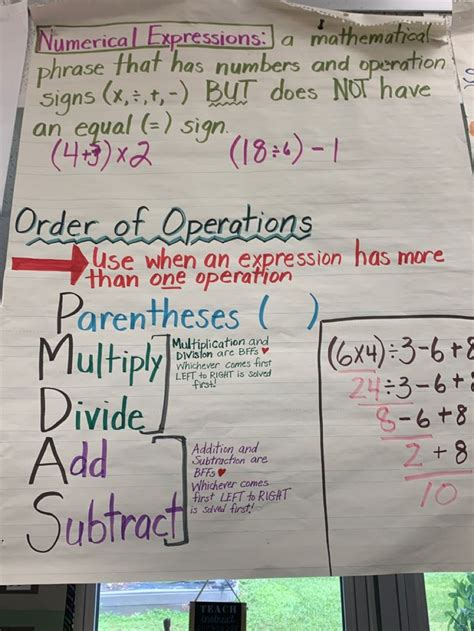 Numerical Expressions: a mathematical
phrase that has numbers and operation
signs (x,÷,+,-) BUT does NOT have
an equal (=) sign.
(4+3)×2 (18÷6)-1
Order of Operations
Use when an expression has more
than one operation
Parentheses ( )
Multiply
Multiplication and
Division are BFFs ♥
Whichever comes first
LEFT to RIGHT is solved
first!
Divide
Add
Addition and
Subtraction are
BFFs ♥
Whichever comes
first LEFT to RIGHT
is solved first!
Subtract
(6x4)÷3-6+8
24÷3-6+
8-6+8
2+8
10
TEACH